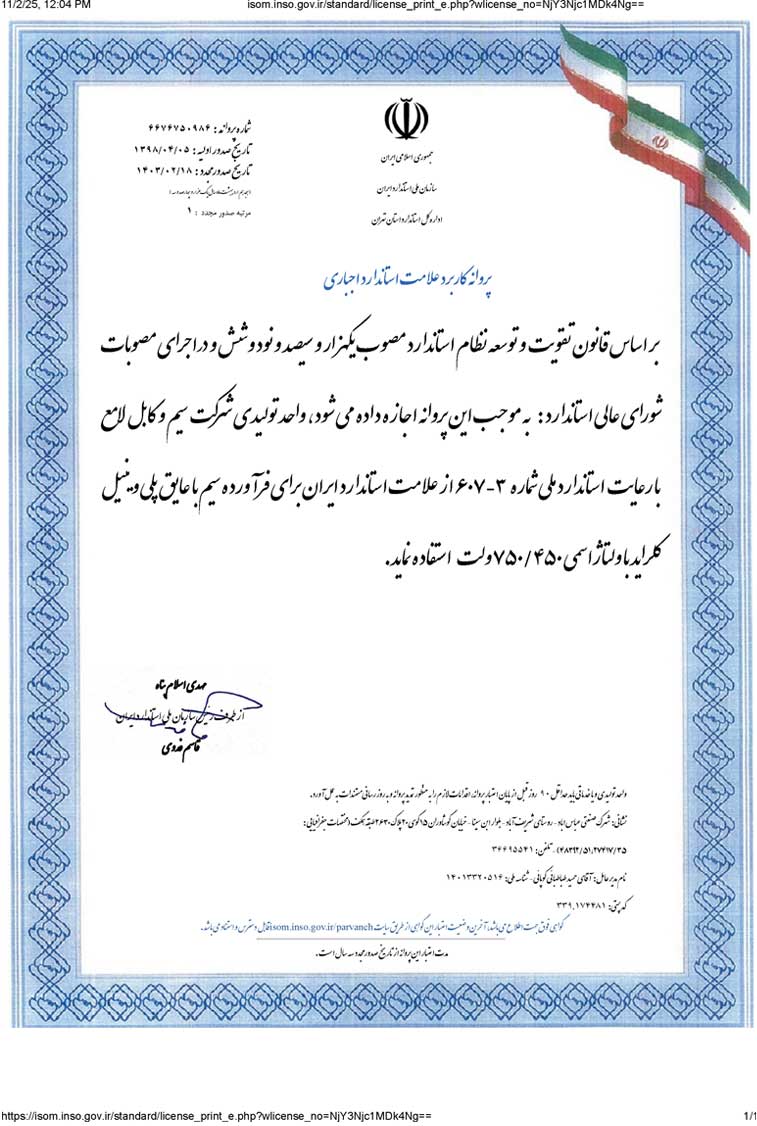 11/2/25, 12:04 PM
isom.inso.gov.ir/standard/license_print_e.php?wlicense_no=NjY3Njc1MDk4Ng==
شماره پروانه: ۶۶۷۶۷۵۰۹۸۶
تاریخ صدور اولیه: ۱۳۹۸/۰۴/۰۵
تاریخ صدور مجدد: ۱۴۰۳/۰۲/۱۸
مرتبه صدور مجدد : ۱
جمهوری اسلامی ایران
سازمان ملی استاندارد ایران
اداره کل استاندارد استان تهران
پروانه کاربرد علامت استاندارد اجباری
بر اساس قانون تقویت و توسعه نظام استاندارد مصوب یکهزار و سیصد و نود و شش و در اجرای مصوبات
شورای عالی استاندارد: به موجب این پروانه اجازه داده می شود، واحد تولیدی شرکت سیم و کابل لامع
با رعایت استاندارد ملی شماره ۳-۶۰۷ از علامت استاندارد ایران برای فرآورده سیم با عایق پلی وینیل
کلراید با ولتاژ اسمی ۷۵۰/۴۵۰ ولت استفاده نماید.
مهدی اسلام پناه
از طرف رئیس سازمان ملی استاندارد ایران
قاسم فدوی
واحد تولیدی و یا خدماتی باید حداقل ۹۰ روز قبل از پایان اعتبار پروانه اقدامات لازم را به منظور تمدید پروانه و به روز رسانی مستندات به عمل آورد.
نشانی: شهرک صنعتی عباس اباد - روستای شریف آباد - بلوار ابن سینا - خیابان کوشاوران ۱۵ کوی ۲۰ پلاک ۲۶۳۰ طبقه همکف (مختصات جغرافیایی:
۴۸۳۹۲/۵۱,۲۷۴۱۷/۳۵) - تلفن: ۳۶۶۹۵۵۴۱
نام مدیر عامل: آقای حمید طباطبائی کوپائی - شناسه ملی: ۱۴۰۱۳۳۲۰۵۱۶
کد پستی: ۳۳۹,۱۷۴۴۸۱
گواهی فوق جهت اطلاع می باشد، آخرین وضعیت اعتبار این گواهی از طریق سایت isom.inso.gov.ir/parvaneh قابل دسترس و استناد می باشد.
مدت اعتبار این پروانه از تاریخ صدور مجدد سه سال است.
https://isom.inso.gov.ir/standard/license_print_e.php?wlicense_no=NjY3Njc1MDk4Ng==
1/1